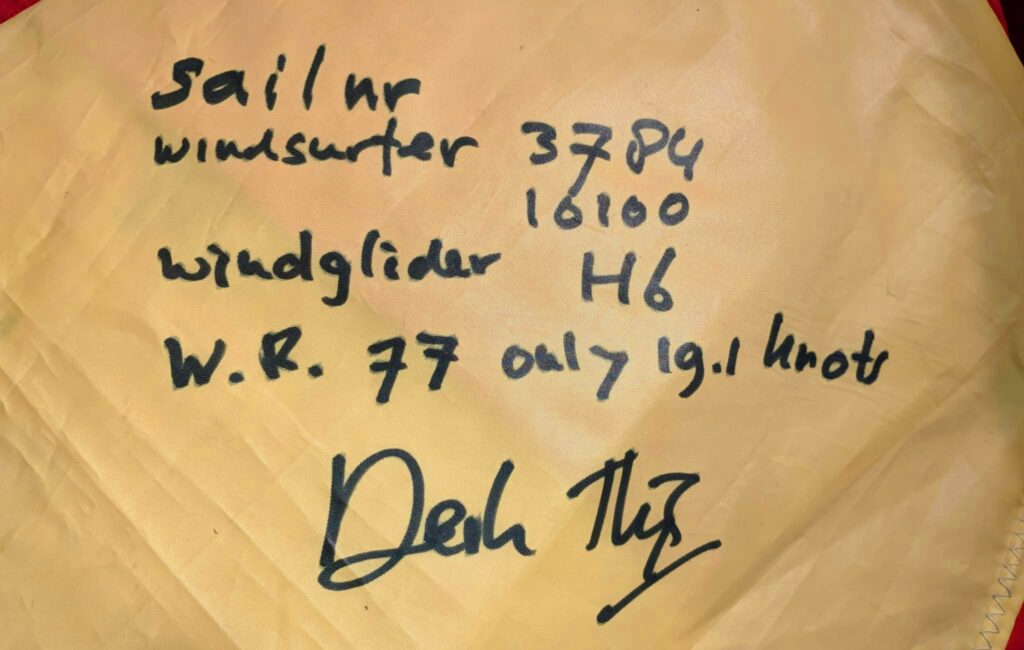 sail nr
windsurfer 3784
16100
windglider H6
W.R. 77 only 19.1 knots
Derk Thijs